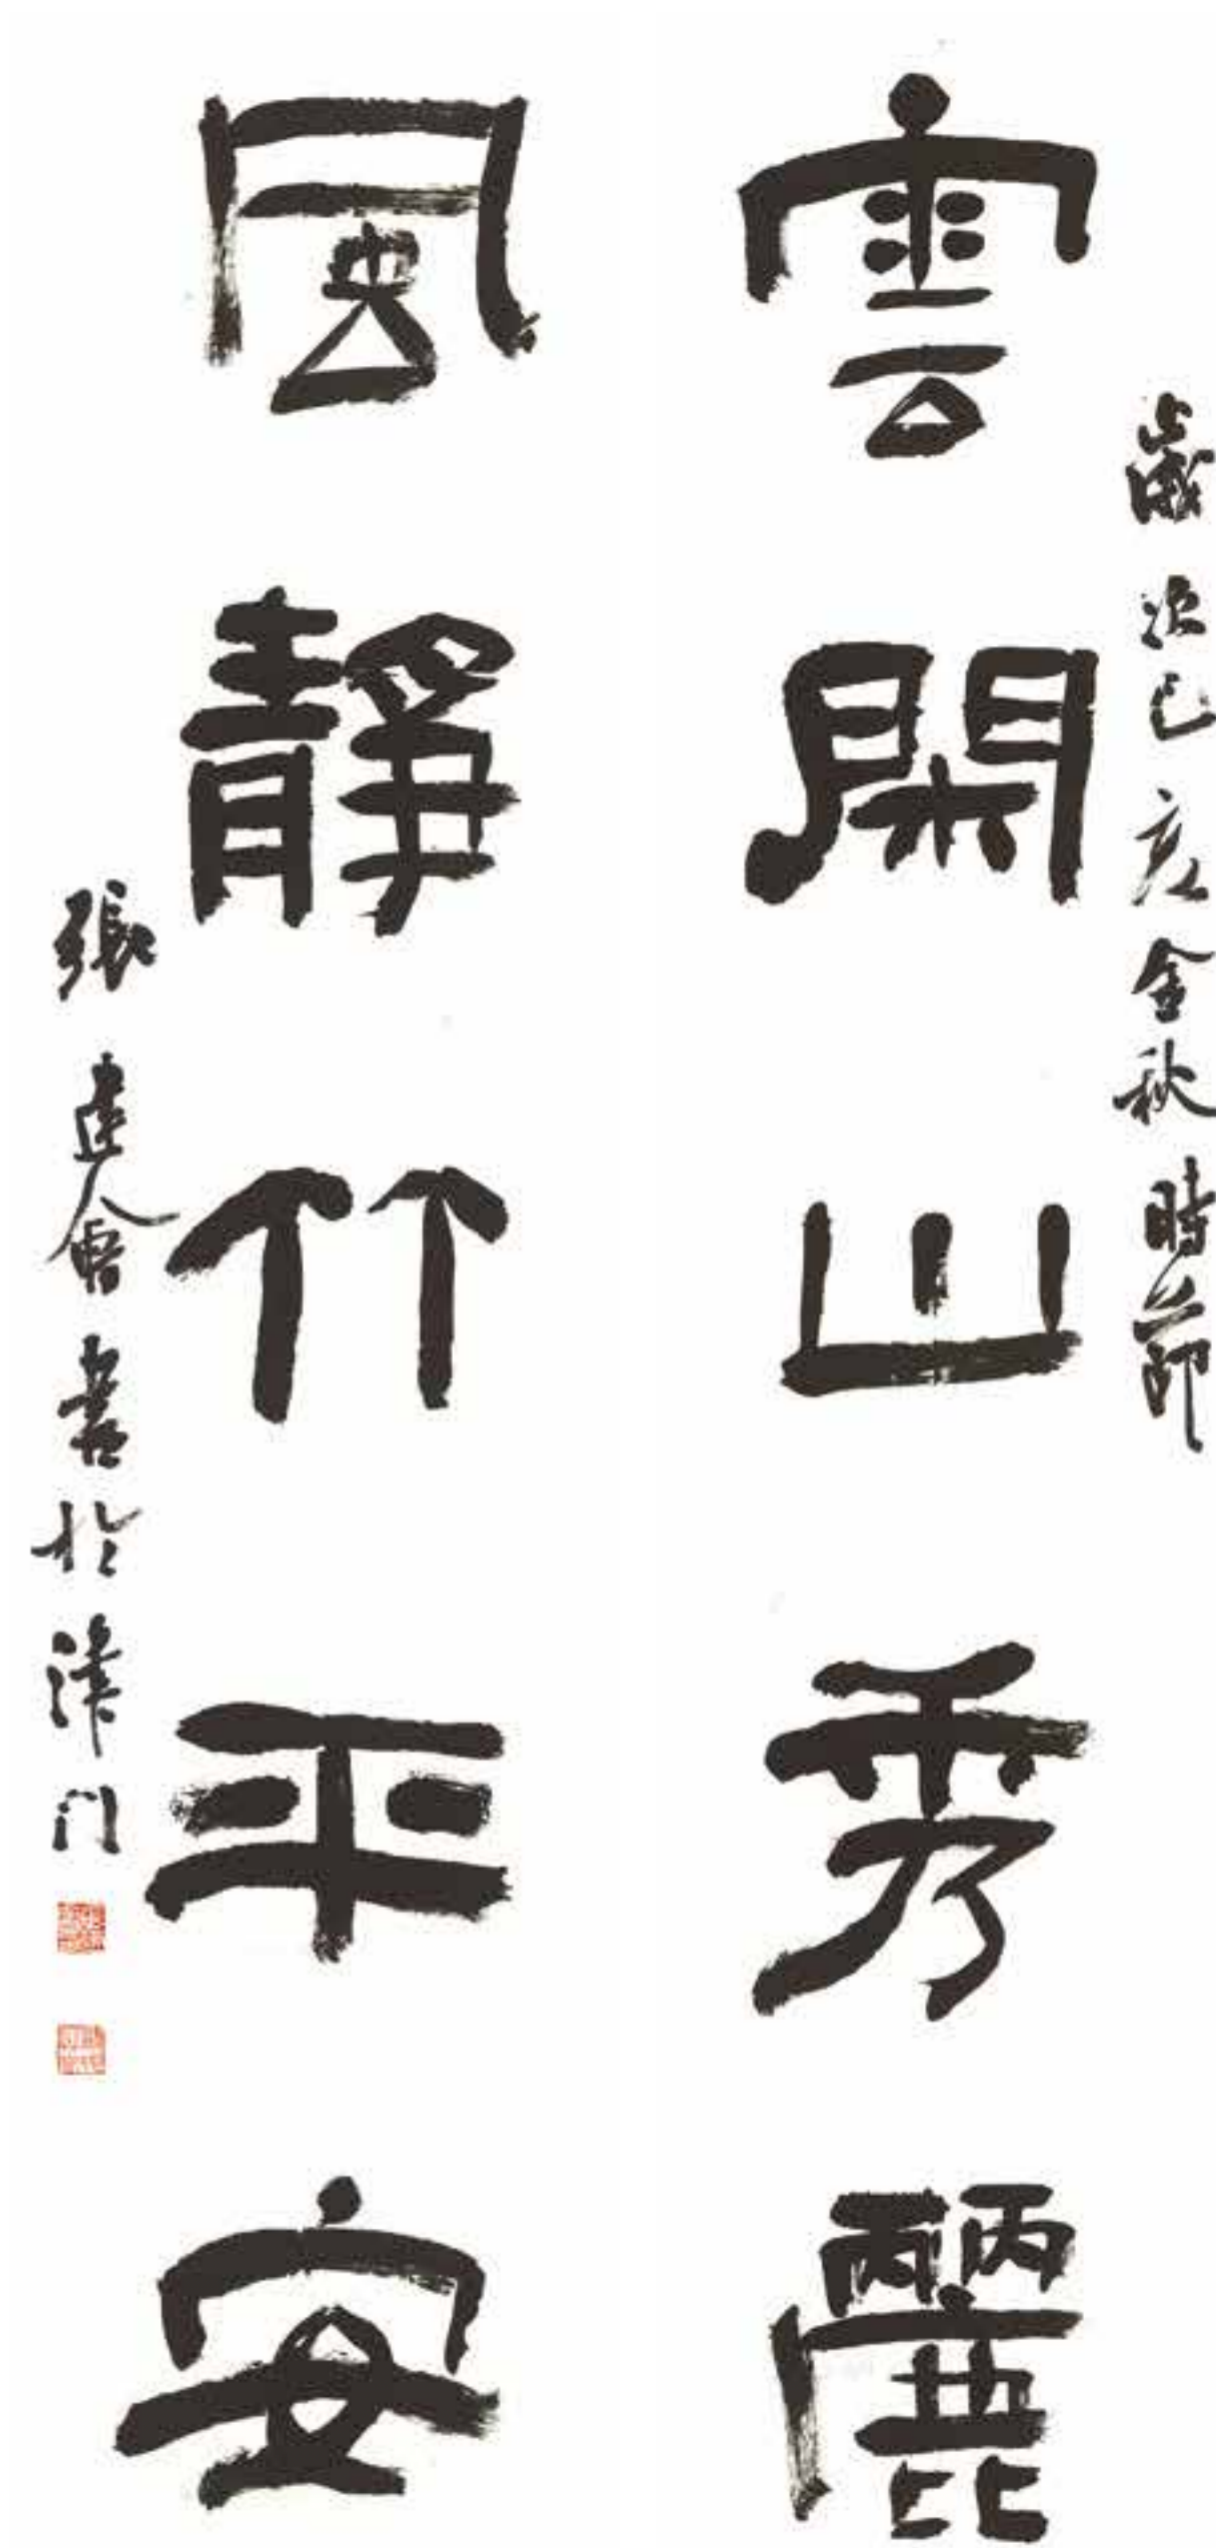 歲次己亥金秋時節
雲閑山秀麗
風靜竹平安
張建會書於津门